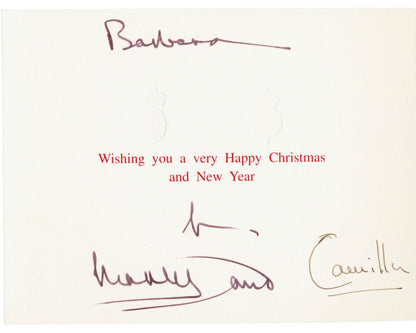 Barbara
Wishing you a very Happy Christmas
and New Year
Camilla